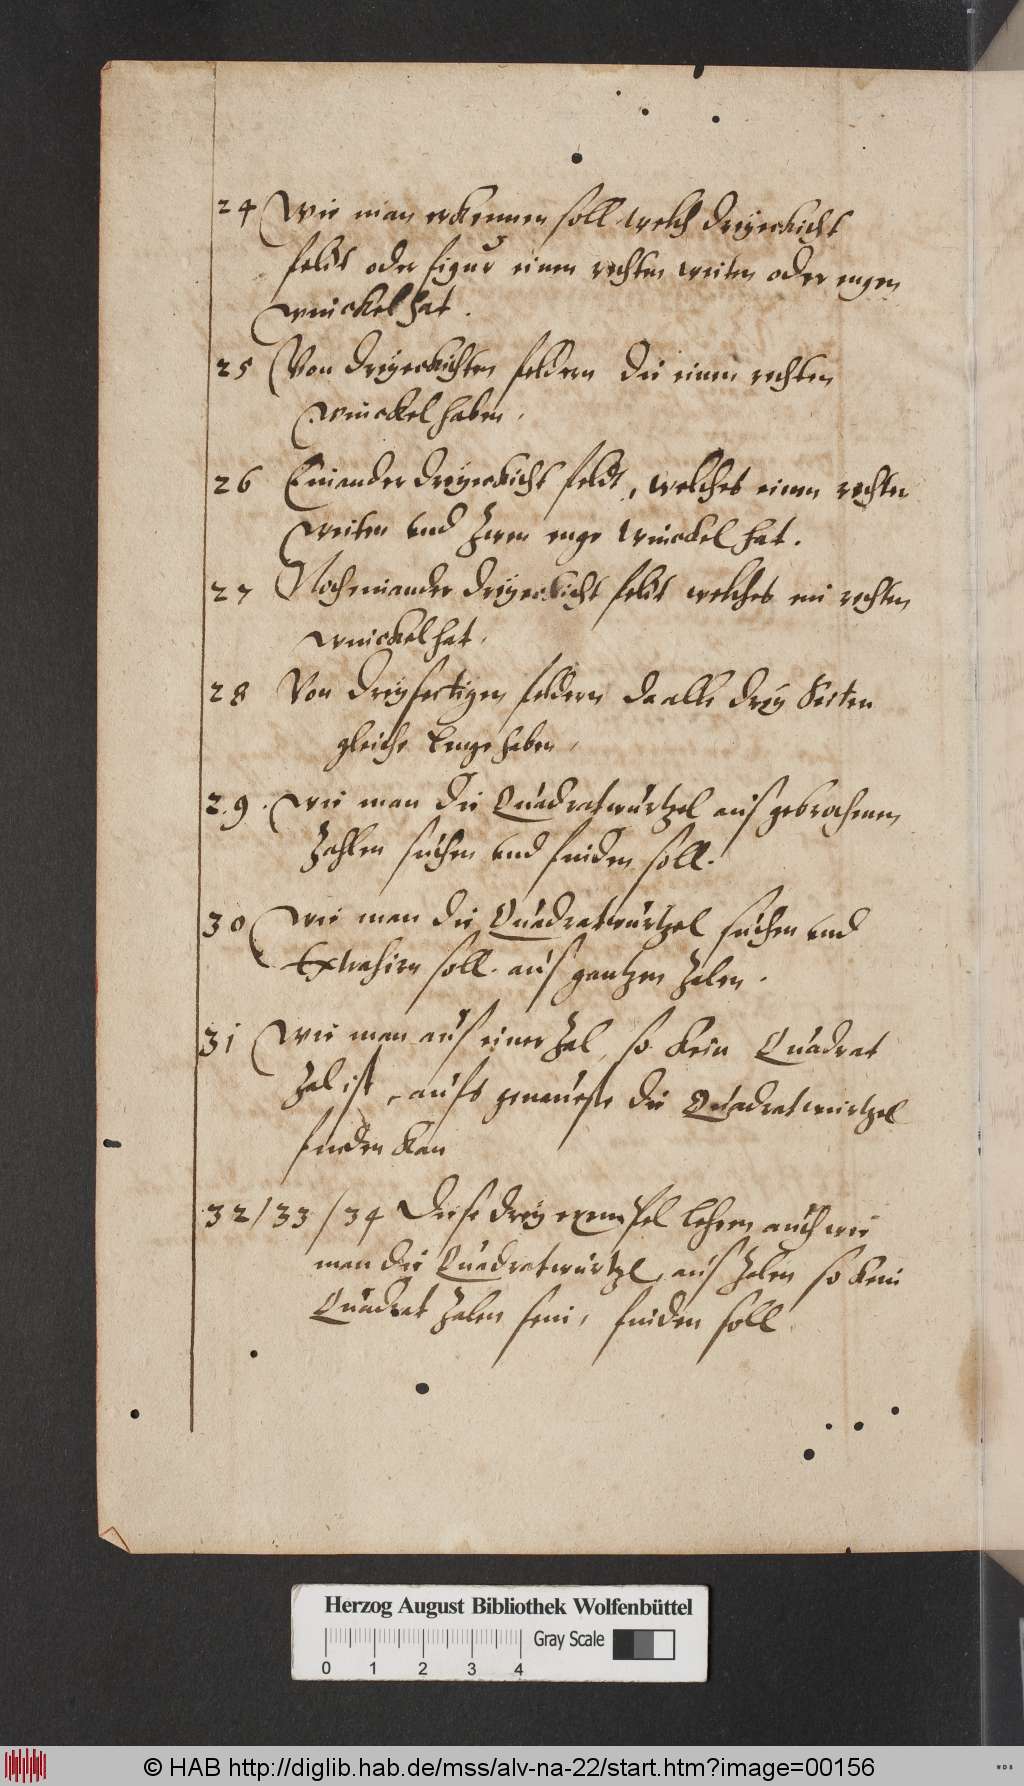 24 Wie man erkennen soll welch dreyeckicht
feldt oder figur einen rechten weiten oder engen
winckel hat.
25 Von dreyeckichten feldern die einen rechten
winckel haben.
26 Ein ander dreyeckicht feldt, welches einen rechten
weiten vnd zwen enge winckel hat.
27 Noch ein ander dreyeckicht feldt welches ein rechten
winckel hat.
28 Von dreyseitigen feldern da alle drey Seiten
gleiche lenge haben.
29. Wie man die Quadratwurtzel aus gebrochenen
Zahlen suchen vnd finden soll.
30 Wie man die Quadratwurtzel suchen vnd
Extrahirn soll. aus gantzen Zalen.
31 Wie man aus einer Zal, so kein Quadrat
Zal ist, aufs geneueste die Quadratwurtzel
finden kan
32/33/34 Diese drey exempel lehren auch wie
man die Quadratwurtzl, aus Zalen so kein
Quadrat Zalen sein, finden soll
Herzog August Bibliothek Wolfenbüttel
Gray Scale
0 1 2 3 4
© HAB http://diglib.hab.de/mss/alv-na-22/start.htm?image=00156